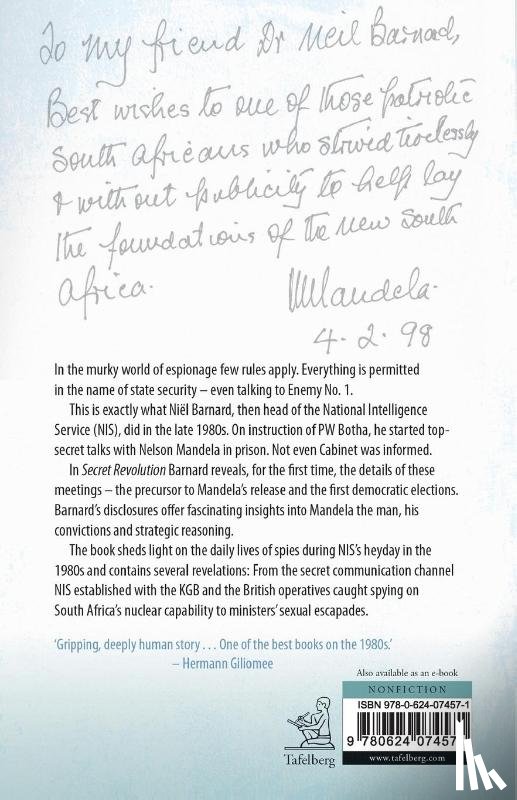 To my friend Dr Neil Barnad,
Best wishes to one of those patriotic
South Africans who strived tirelessly
& without publicity to help lay
the foundations of the new South
Africa.
NMandela.
4.2.98
In the murky world of espionage few rules apply. Everything is permitted
in the name of state security – even talking to Enemy No. 1.
This is exactly what Niël Barnard, then head of the National Intelligence
Service (NIS), did in the late 1980s. On instruction of PW Botha, he started top-
secret talks with Nelson Mandela in prison. Not even Cabinet was informed.
In Secret Revolution Barnard reveals, for the first time, the details of these
meetings – the precursor to Mandela’s release and the first democratic elections.
Barnard’s disclosures offer fascinating insights into Mandela the man, his
convictions and strategic reasoning.
The book sheds light on the daily lives of spies during NIS’s heyday in the
1980s and contains several revelations: From the secret communication channel
NIS established with the KGB and the British operatives caught spying on
South Africa’s nuclear capability to ministers’ sexual escapades.
‘Gripping, deeply human story . . . One of the best books on the 1980s.’
– Hermann Giliomee
Also available as an e-book
NONFICTION
ISBN 978-0-624-07457-1
9 780624 07457
www.tafelberg.com
Tafelberg